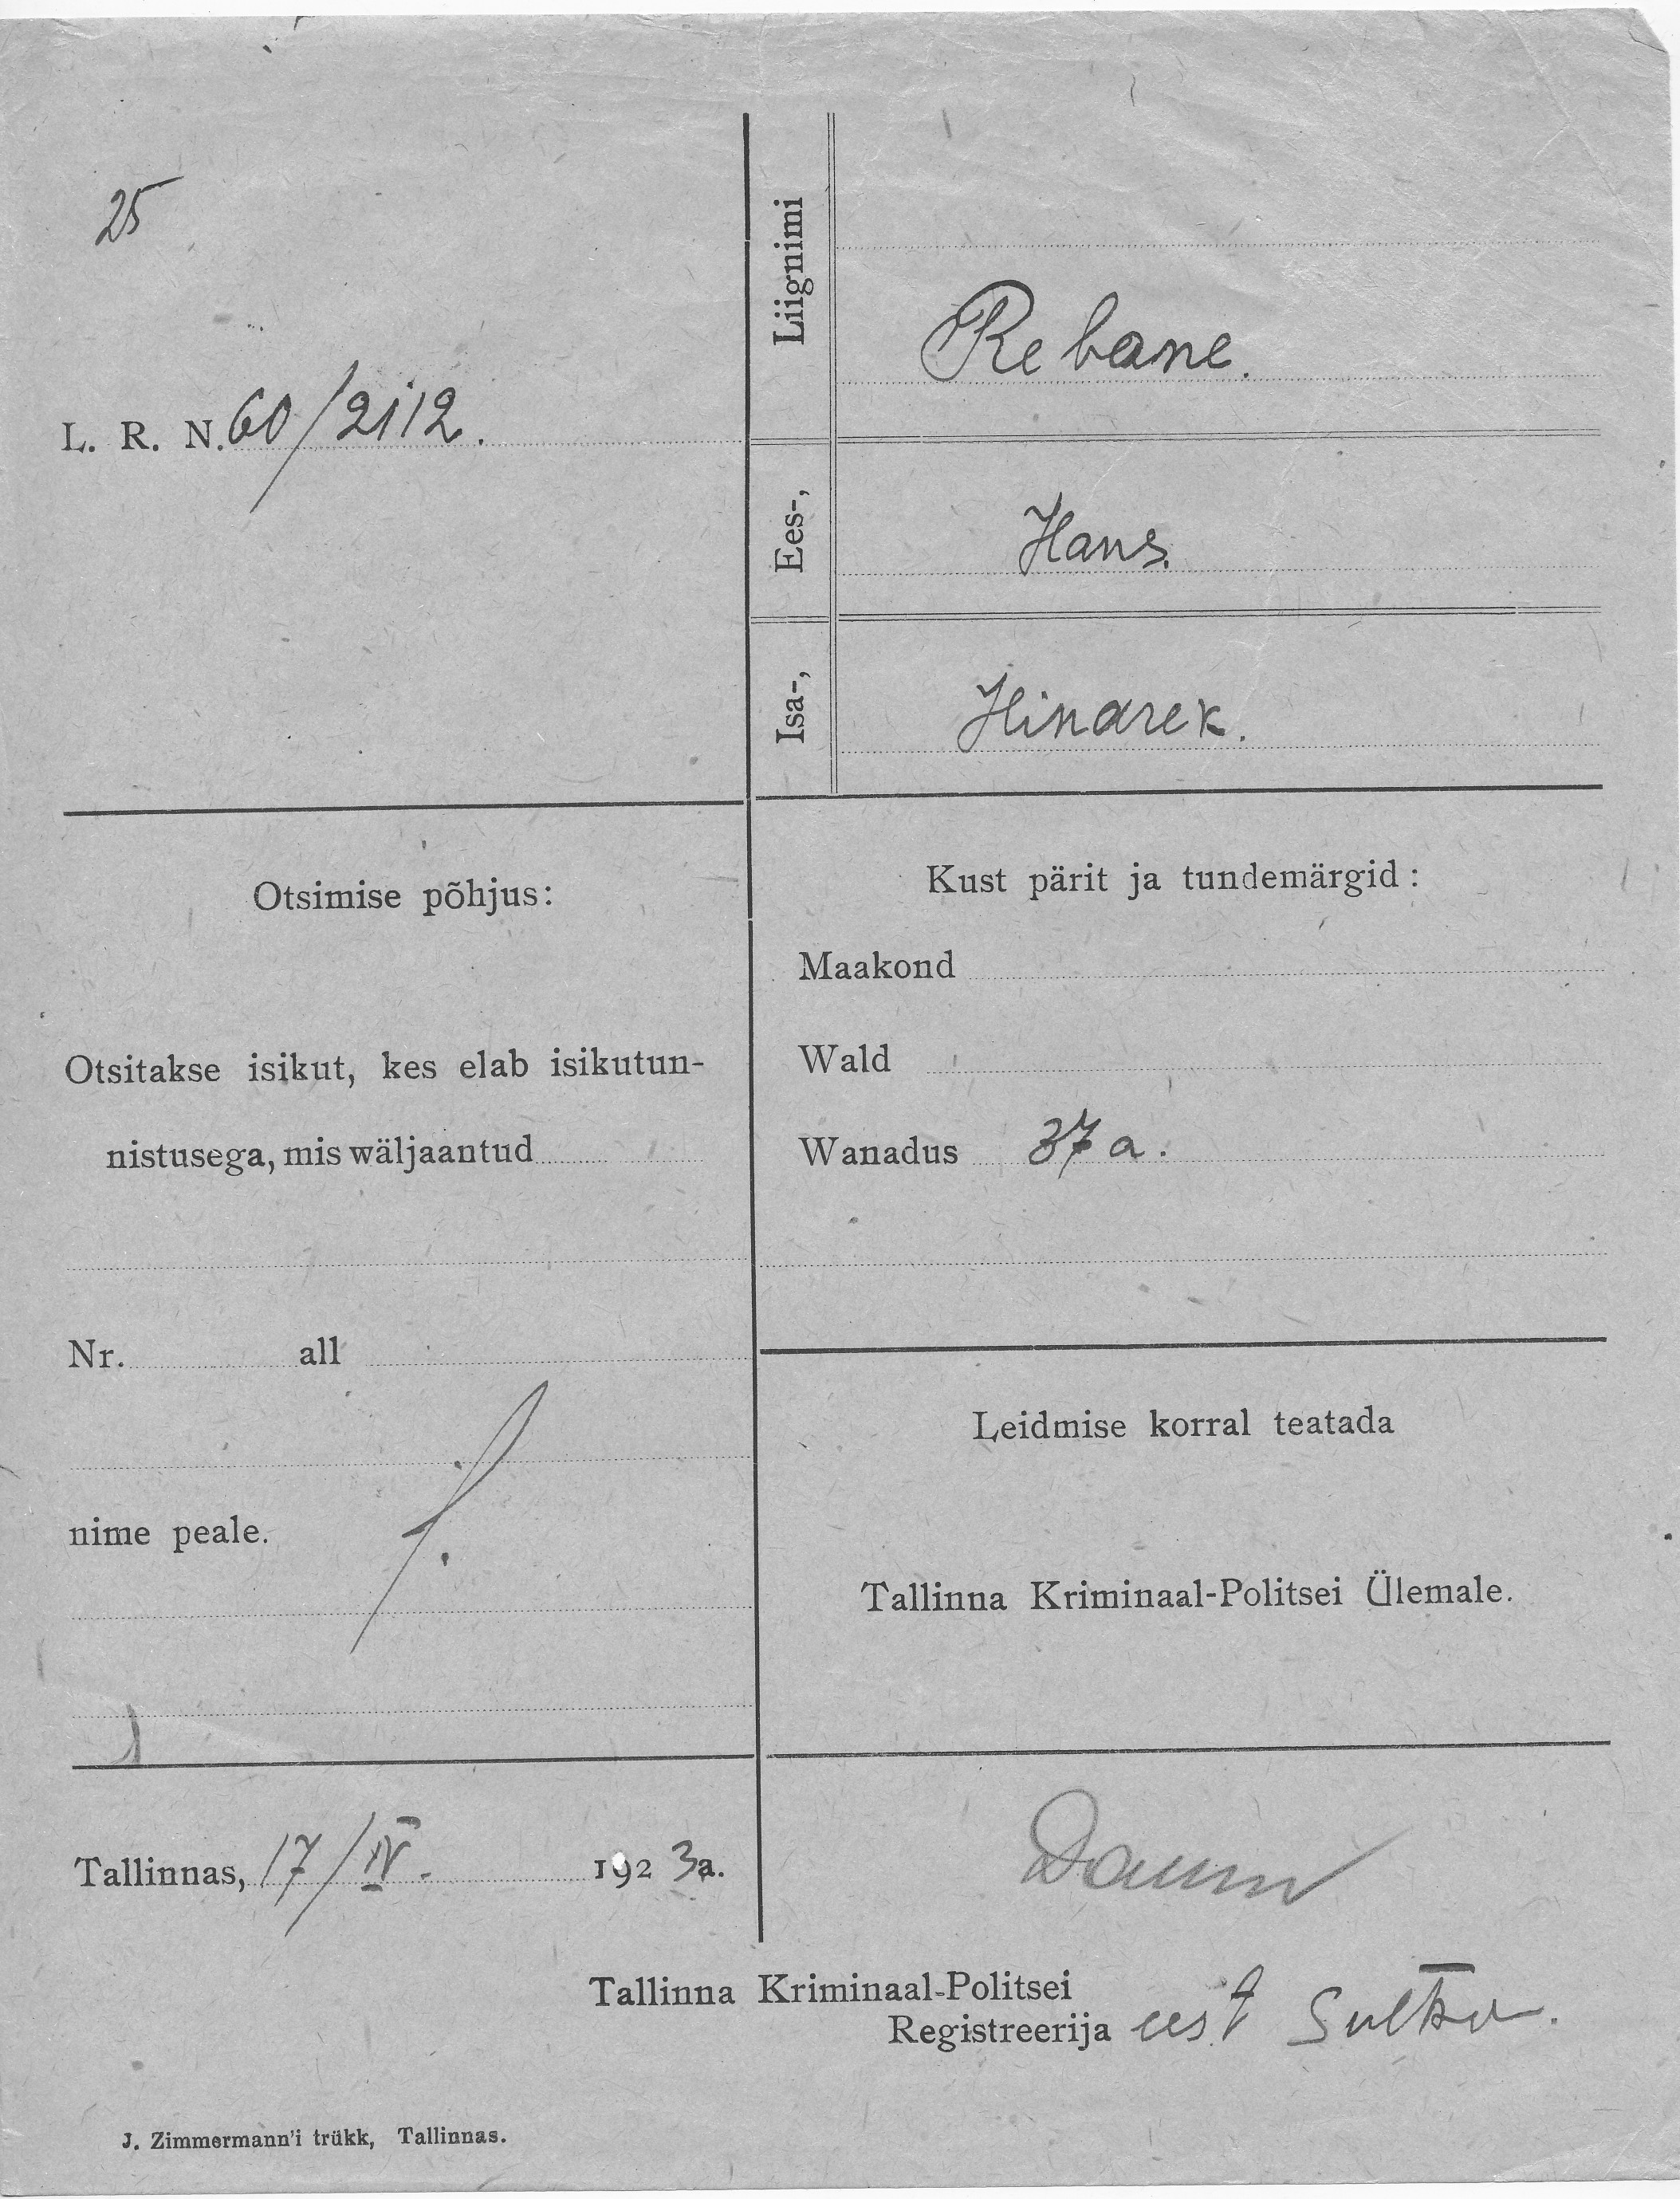 25
L. R. N. 60/2112.
Liignimi
Rebane.
Ees-,
Hans.
Isa-,
Hinarek.
Otsimise põhjus:
Otsitakse isikut, kes elab isikutun-
nistusega, mis wäljaantud
Nr. all
nime peale.
Kust pärit ja tundemärgid:
Maakond
Wald
Wanadus 37 a.
Leidmise korral teatada
Tallinna Kriminaal-Politsei Ülemale.
Tallinnas, 17/IV. 1923a.
Tallinna Kriminaal-Politsei
Registreerija eest
J. Zimmermann'i trükk, Tallinnas.